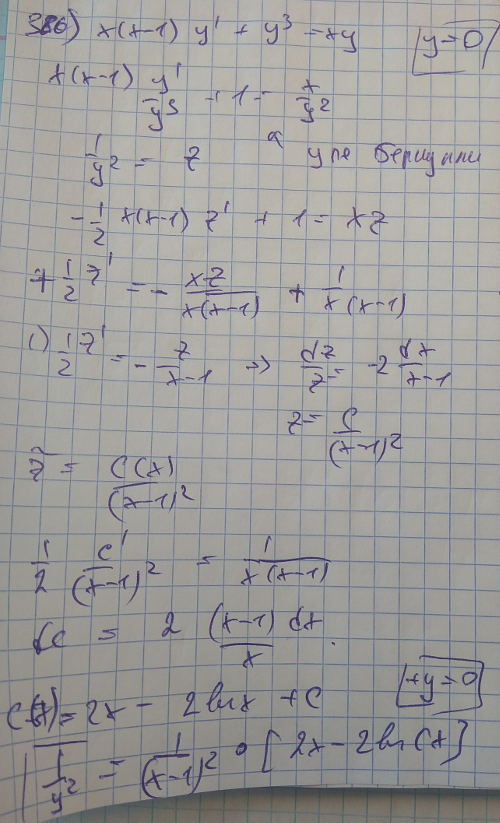 386) x(x-1) y' + y³ = xy   y=0
x(x-1) y'/y³ + 1 = x/y²
1/y² = z
- 1/2 x(x-1) z' + 1 = xz
+ 1/2 z' = - xz/x(x-1) + 1/x(x-1)
1) 1/2 z' = - z/x-1 => dz/z = -2 dx/x-1
z = C/(x-1)²
z̃ = C(x)/(x-1)²
1/2 C'/(x-1)² = 1/x(x-1)
dc = 2 (x-1) dx/x .
C(x) = 2x - 2lnx + C   +y=0
1/y² = 1/(x-1)² • [ 2x - 2ln(x) ]